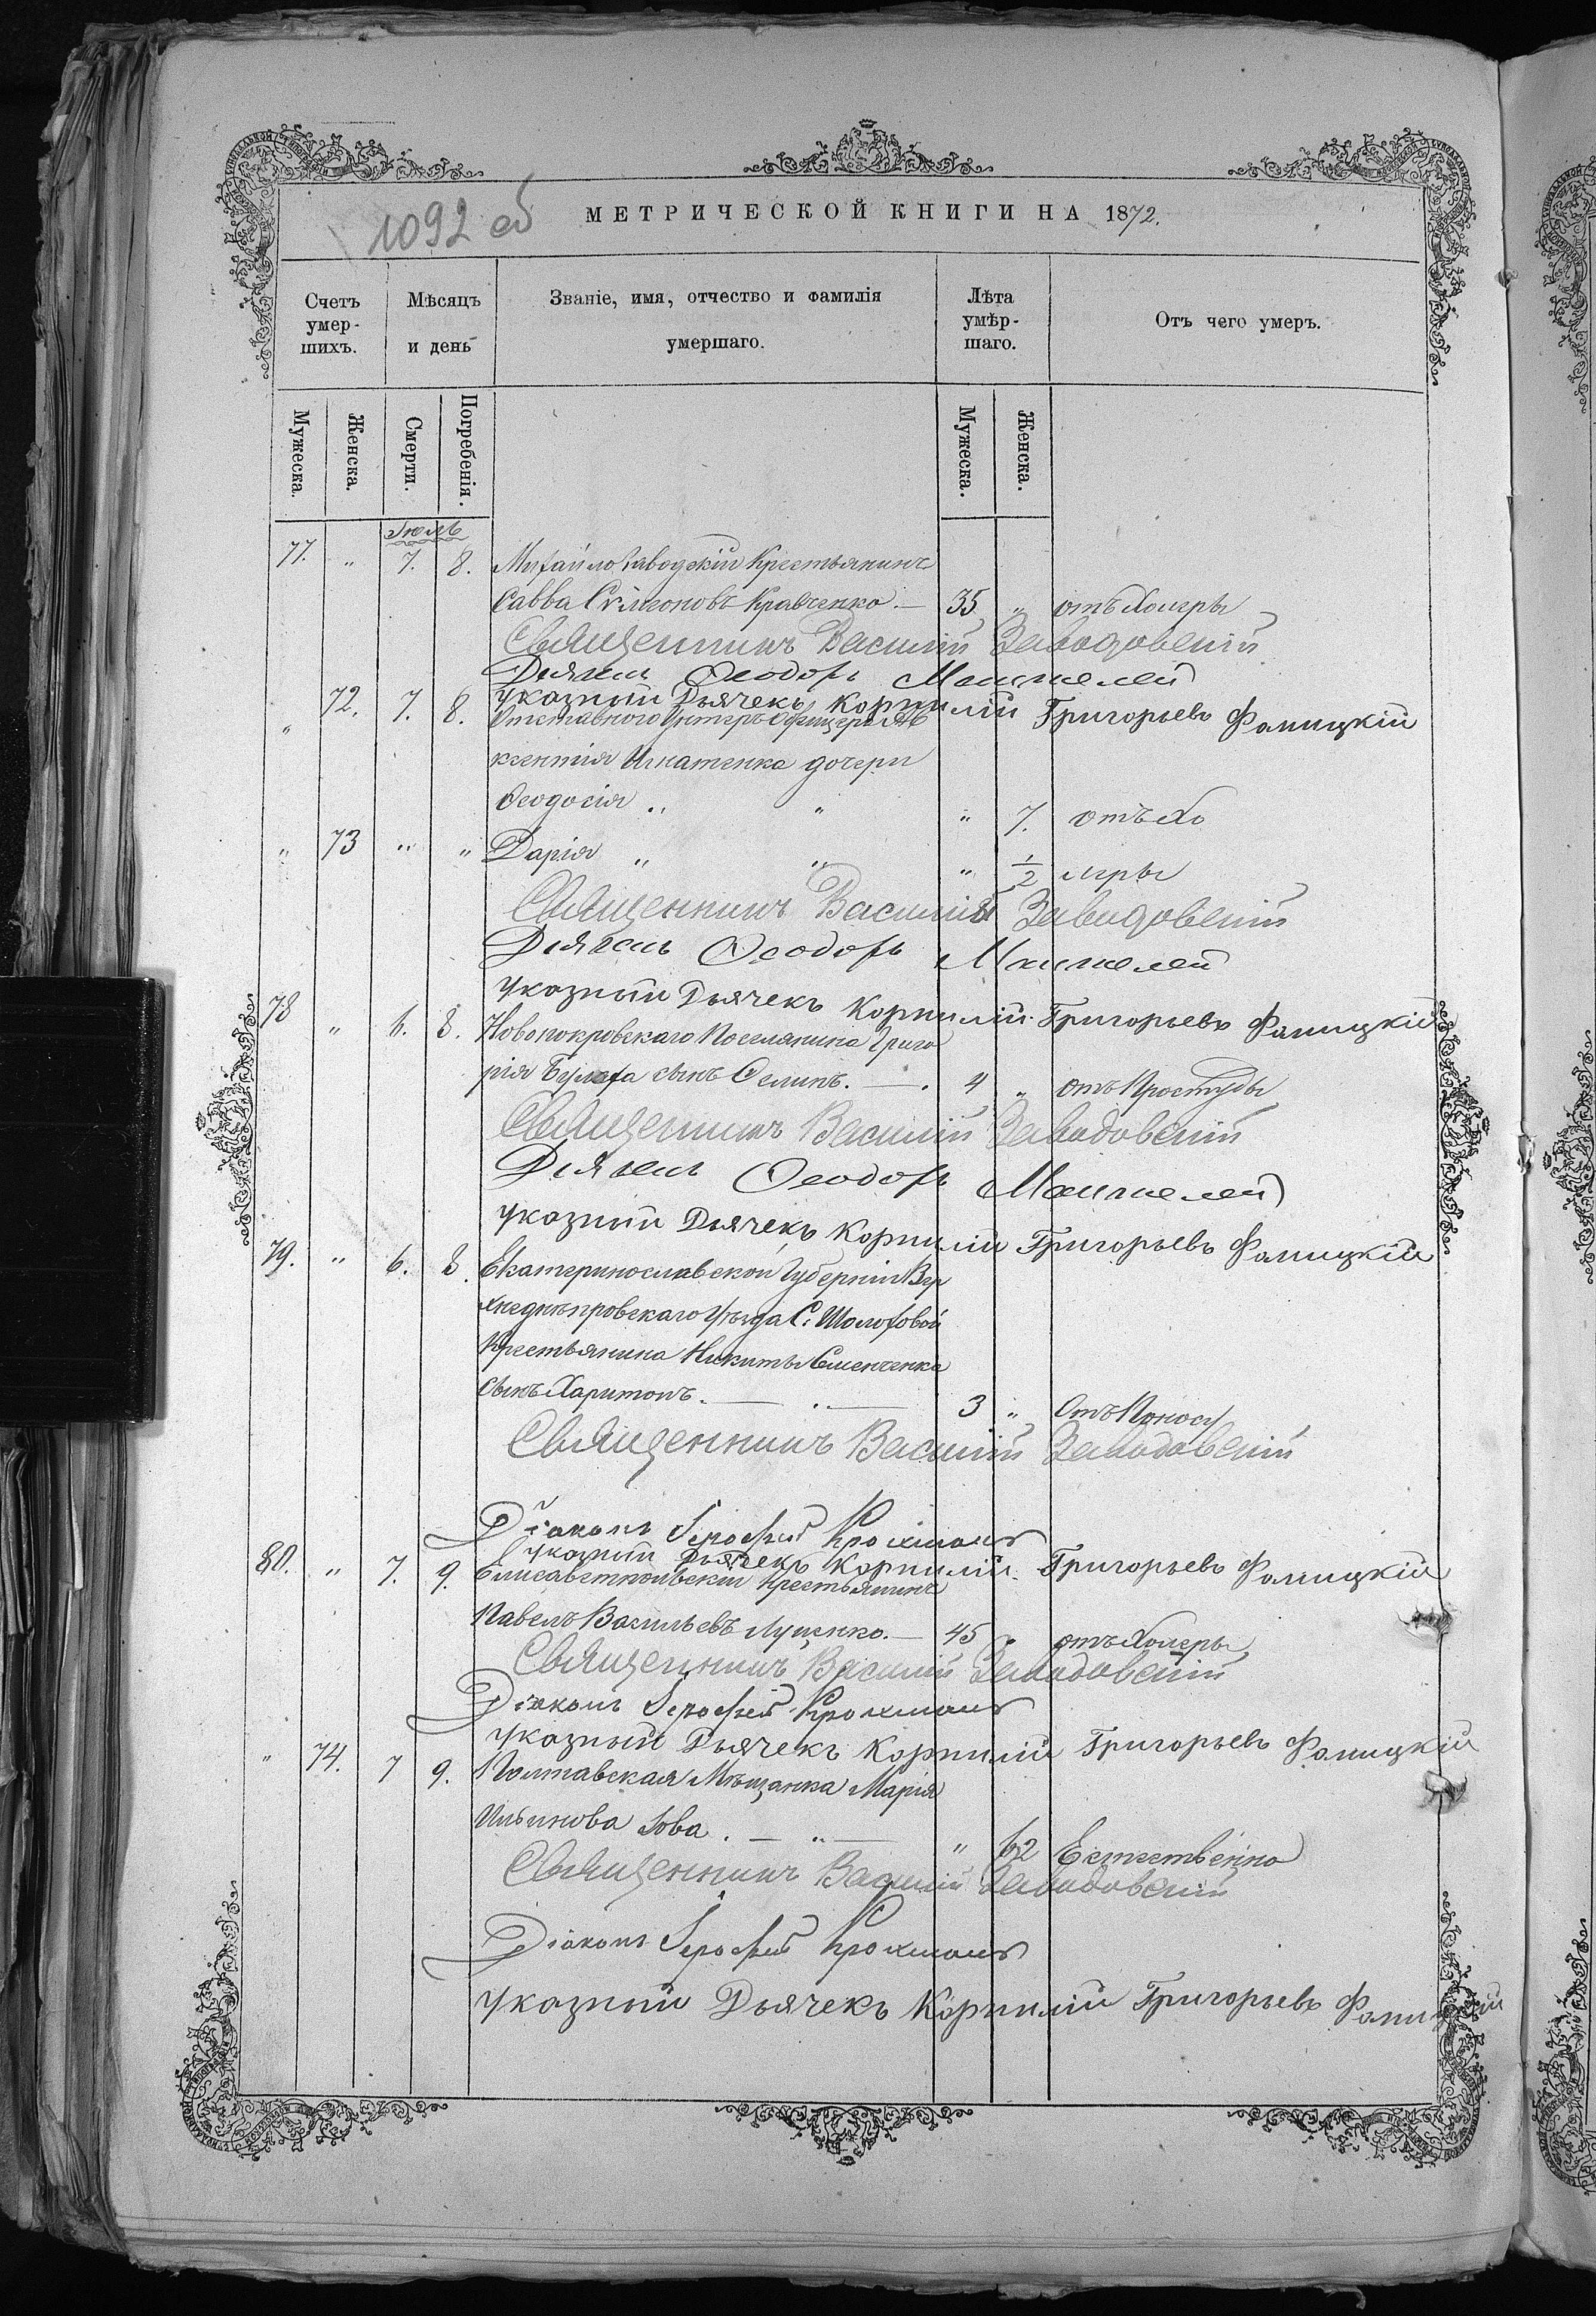 1092 об
МЕТРИЧЕСКОЙ КНИГИ НА 1872.
Счетъ умер-шихъ.
Мѣсяцъ и день
Званіе, имя, отчество и фамилія умершаго.
Лѣта умѣр-шаго.
Отъ чего умеръ.
Мужеска.
Женска.
Смерти.
Погребенія.
Мужеска.
Женска.
Іюль
77. " 7. 8. Михайлозаводскій Крестьянинъ
Савва Симеоновъ Кравченко. — 35 " отъ Холеры
Священникъ Василій Заводовскій
Діяконъ Ѳеодоръ
Указный Дьячекъ Корнилій Григорьевъ Фолицкій
" 72. 7. 8. Отставного Унтеръ Офицера Ав
ксентія Игнатенка дочери
Ѳеодосія " " " 7. отъ Хо
" 73 " " Дарія " " " 1/2 леры
Священникъ Василій Заводовскій
Діяконъ Ѳеодоръ
Указный Дьячекъ Корнилій Григорьевъ Фолицкій
78 " 6. 8. Новопокровскаго Поселянина Григо
рія сынъ —. 4 " отъ Простуды
Священникъ Василій Заводовскій
Діяконъ Ѳеодоръ
Указный Дьячекъ Корнилій Григорьевъ Фолицкій
79. " 6. 8. Екатеринославской Губерніи Вер
хнеднѣпровскаго Уѣзда С. Шолоховой
Крестьянина Никиты Семенченка
сынъ Харитонъ. — " — 3 " Отъ Поносу
Священникъ Василій Заводовскій
Діаконъ Іерофей
Указный Дьячекъ Корнилій Григорьевъ Фолицкій
80. " 7. 9. Крестьянинъ
Павелъ Васильевъ Луценко. — 45 " отъ Холеры
Священникъ Василій Заводовскій
Діаконъ Іерофей
Указный Дьячекъ Корнилій Григорьевъ Фолицкій
" 74. 7 9. Полтавская Мѣщанка Марія
Ильинова Зова. — " — " 62 Естественно
Священникъ Василій Заводовскій
Діаконъ Іерофей
Указный Дьячекъ Корнилій Григорьевъ Фолицкій